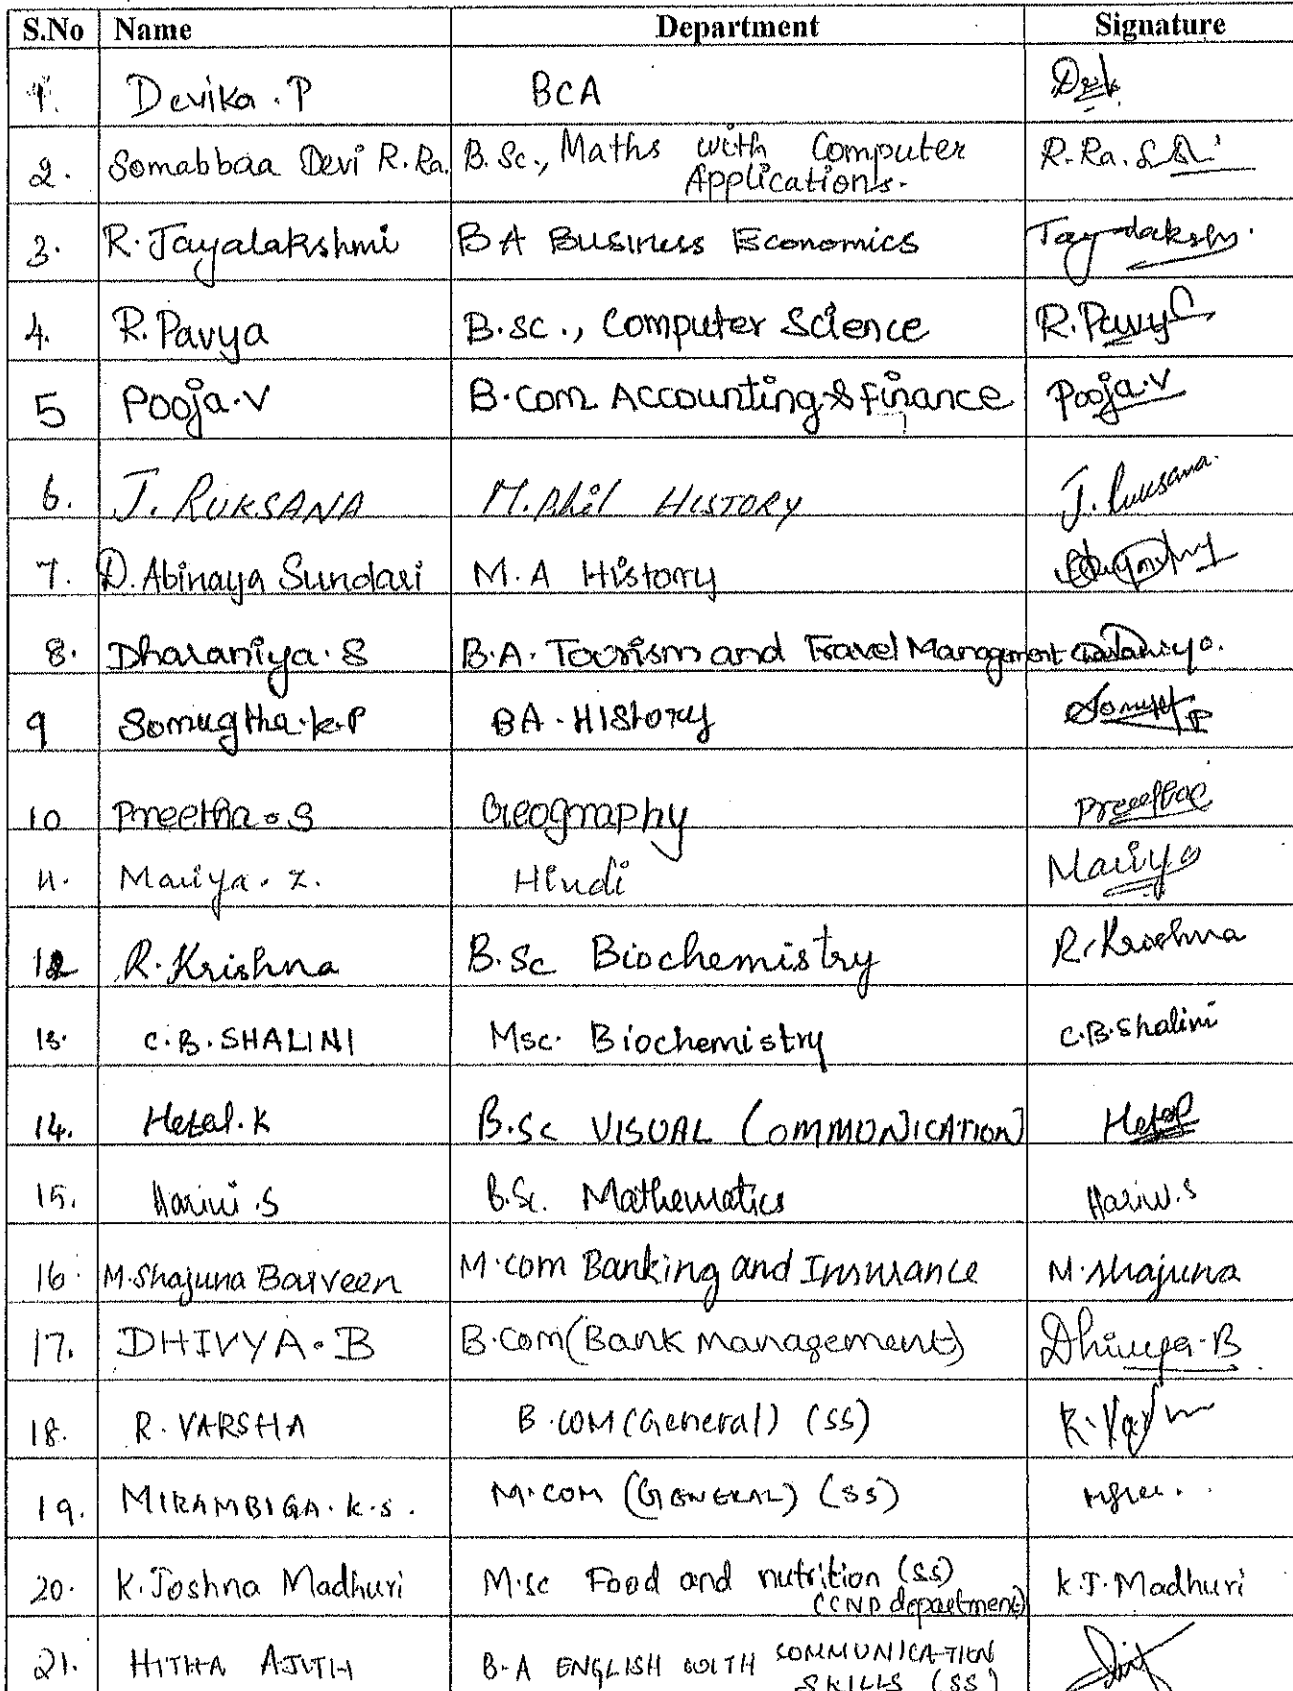 S.No Name Department Signature
1. Devika . P BCA
2. Somabbaa Devi R.Ra. B.Sc., Maths with Computer R.Ra.
Applications.
3. R. Jayalakshmi BA Business Economics
4. R. Pavya B.sc., Computer Science R. Pavy
5 Pooja.V B.Com Accounting & Finance Pooja.V
6. J. RUKSANA M.Phil HISTORY J. Ruksana.
7. D. Abinaya Sundari M.A History
8. Dharaniya. S B.A. Tourism and Travel Management
9 Somugtha.K.P BA - History
10 Preetha . S Geography Preetha
11. Mariya . Z. Hindi Mariya
12 R. Krishna B.Sc Biochemistry R. Krishna
13. C.B. SHALINI Msc. Biochemistry C.B. Shalini
14. Hetal. K B.Sc VISUAL COMMUNICATION Hetal
15. Harini .S B.Sc. Mathematics Harini.S
16. M. Shajuna Barveen M.com Banking and Insurance M. Shajuna
17. DHIVYA . B B.Com (Bank Management) Dhivya.B
18. R. VARSHA B.COM (General) (SS)
19. MIRAMBIGA. K.S. M.COM (GENERAL) (SS)
20. K. Joshna Madhuri M.sc Food and nutrition (SS) K.J. Madhuri
(CCND department)
21. HITHA AJITH B.A ENGLISH WITH COMMUNICATION
SKILLS (SS)